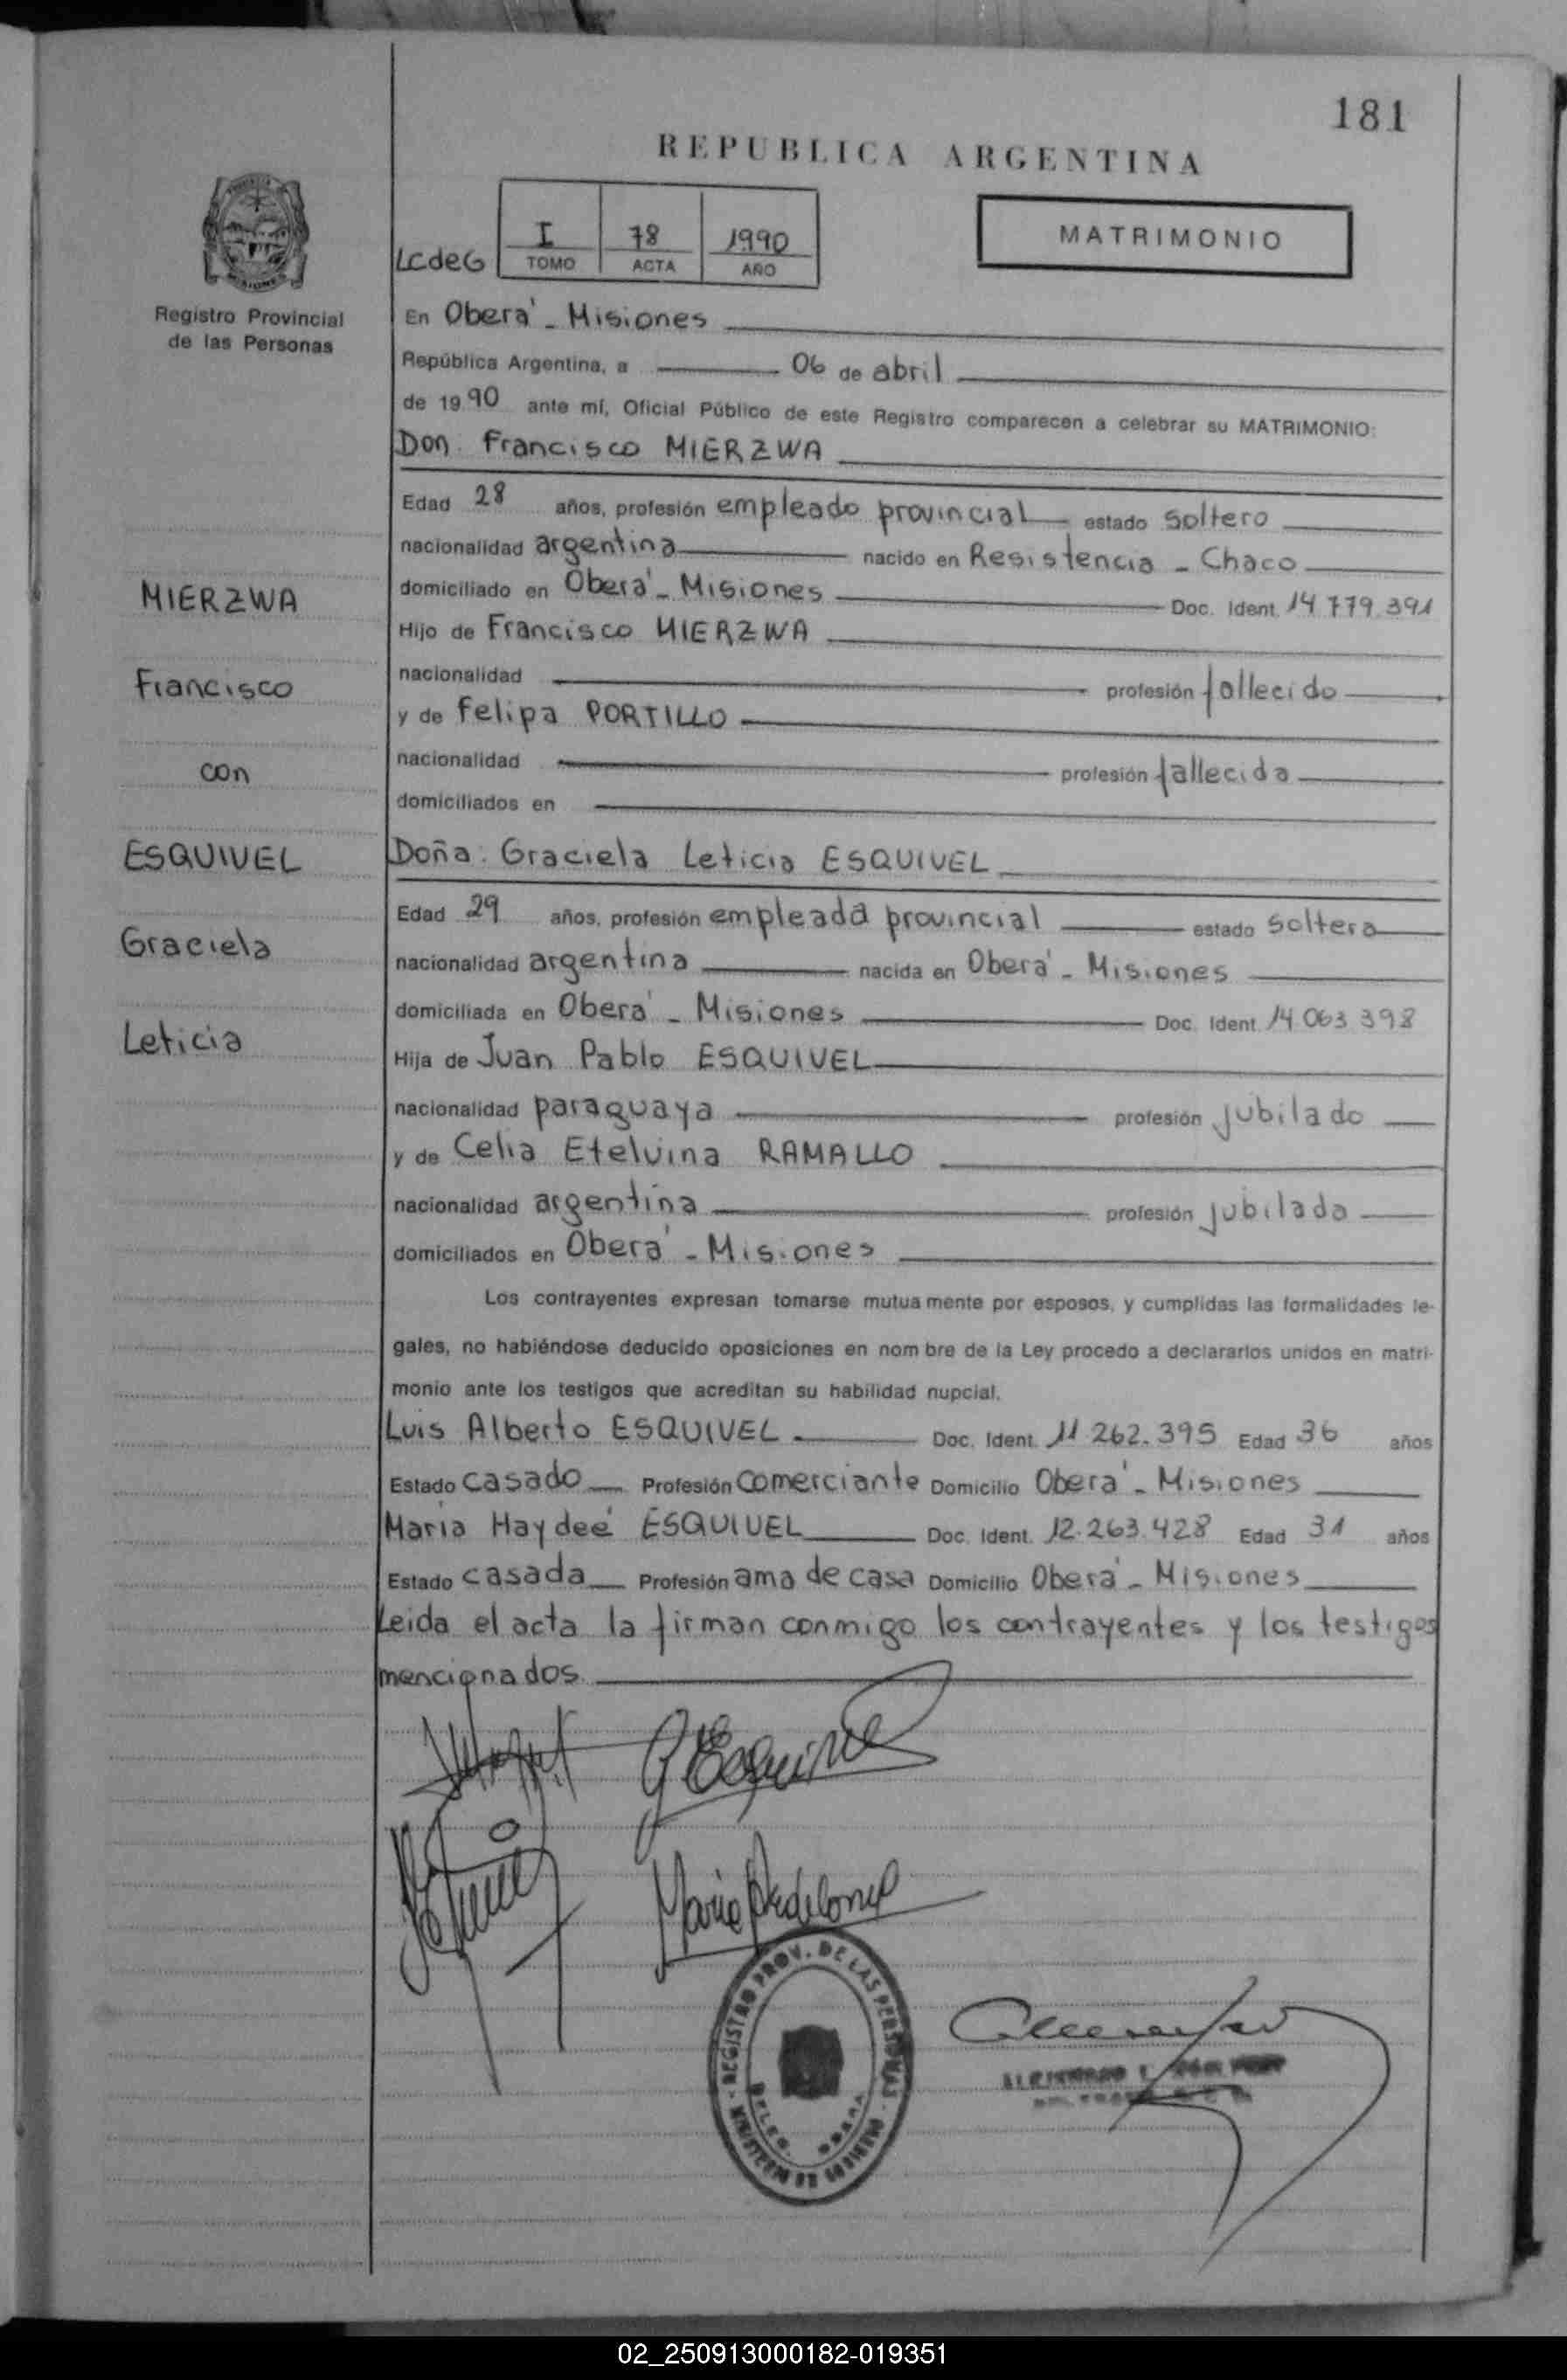 181
REPUBLICA ARGENTINA
LCdeG
I 78 1990
TOMO ACTA AÑO
MATRIMONIO
Registro Provincial
de las Personas
En Oberá - Misiones
República Argentina, a 06 de abril
de 19 90 ante mí, Oficial Público de este Registro comparecen a celebrar su MATRIMONIO:
Don: Francisco MIERZWA
Edad 28 años, profesión empleado provincial estado soltero
nacionalidad argentina nacido en Resistencia - Chaco
domiciliado en Oberá - Misiones Doc. Ident. 14.779.391
Hijo de Francisco MIERZWA
nacionalidad profesión fallecido
y de Felipa PORTILLO
nacionalidad profesión fallecida
domiciliados en
MIERZWA
Francisco
con
ESQUIVEL
Graciela
Leticia
Doña: Graciela Leticia ESQUIVEL
Edad 29 años, profesión empleada provincial estado soltera
nacionalidad argentina nacida en Oberá - Misiones
domiciliada en Oberá - Misiones Doc. Ident. 14.063.398
Hija de Juan Pablo ESQUIVEL
nacionalidad paraguaya profesión jubilado
y de Celia Etelvina RAMALLO
nacionalidad argentina profesión jubilada
domiciliados en Oberá - Misiones
Los contrayentes expresan tomarse mutua mente por esposos, y cumplidas las formalidades le-
gales, no habiéndose deducido oposiciones en nom bre de la Ley procedo a declararlos unidos en matri-
monio ante los testigos que acreditan su habilidad nupcial.
Luis Alberto ESQUIVEL Doc. Ident. 11.262.395 Edad 36 años
Estado casado Profesión comerciante Domicilio Oberá - Misiones
Maria Haydeé ESQUIVEL Doc. Ident. 12.263.428 Edad 31 años
Estado casada Profesión ama de casa Domicilio Oberá - Misiones
Leida el acta la firman conmigo los contrayentes y los testigos
mencionados.
G Esquivel
REGISTRO PROV. DE LAS PERSONAS
MINISTERIO DE GOBIERNO
DELEG. OBERA
02_250913000182-019351